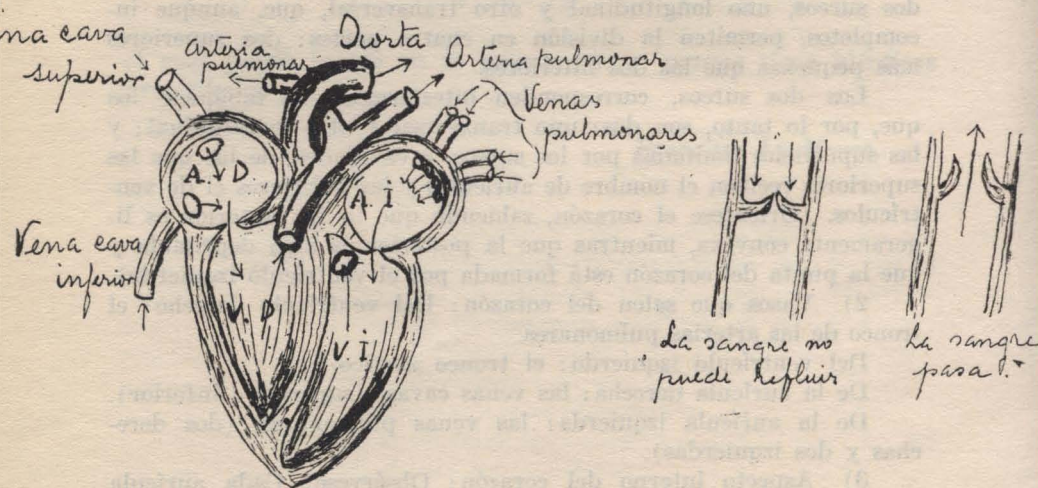 Vena cava
superior
Arteria
pulmonar
Aorta
Arteria pulmonar
Venas
pulmonares
A. D.
A. I
Vena cava
inferior
V. D
V. I.
La sangre no
puede refluir
La sangre
pasa.